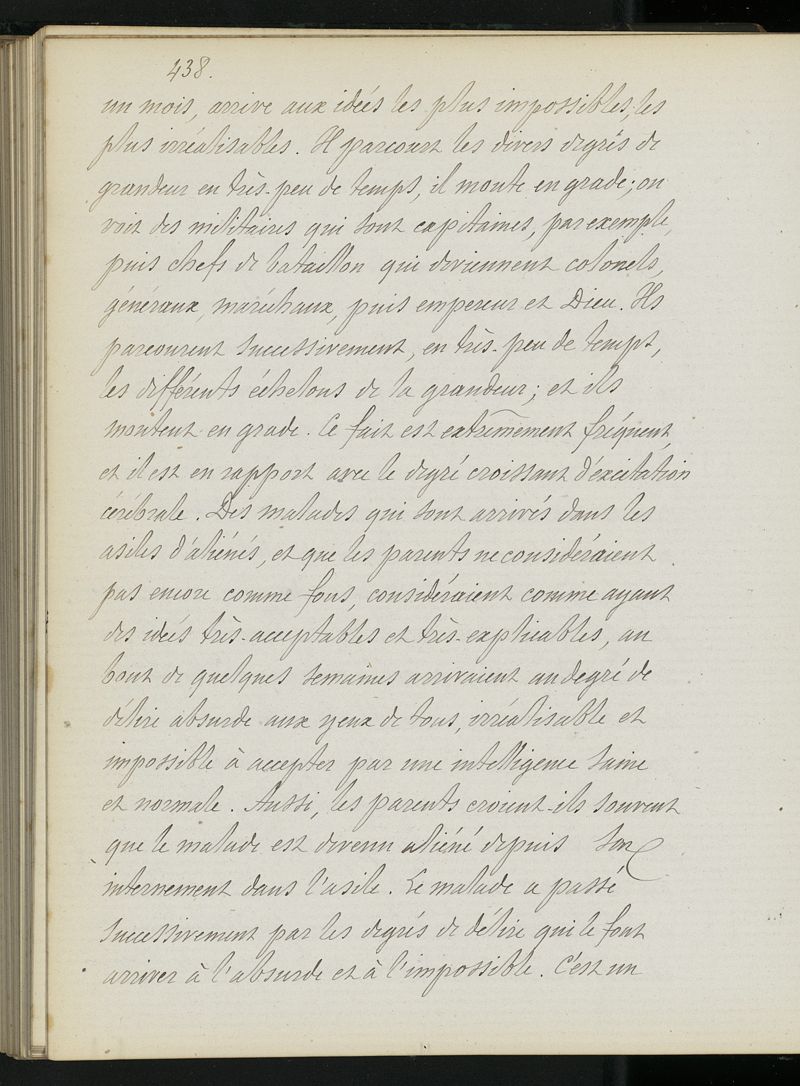 438.
un mois, arrive aux idées les plus impossibles, les
plus irréalisables. Il parcourt les divers degrés de
grandeur en très-peu de temps, il monte en grade; on
voit des militaires qui sont capitaines, par exemple,
puis chefs de bataillon qui deviennent colonels,
généraux, maréchaux, puis empereur et Dieu. Ils
parcourent successivement, en très-peu de temps,
les différents échelons de la grandeur; et ils
montent en grade. Ce fait est extrêmement fréquent,
et il est en rapport avec le degré croissant d'excitation
cérébrale. Des malades qui sont arrivés dans les
asiles d'aliénés, et que les parents ne considéraient
pas encore comme fous, considéraient comme ayant
des idées très-acceptables et très-explicables, au
bout de quelques semaines arrivaient au degré de
délire absurde aux yeux de tous, irréalisable et
impossible à accepter par une intelligence saine
et normale. Aussi, les parents croient-ils souvent
que le malade est devenu aliéné depuis son
internement dans l'asile. Le malade a passé
successivement par les degrés de délire qui le font
arriver à l'absurde et à l'impossible. C'est un